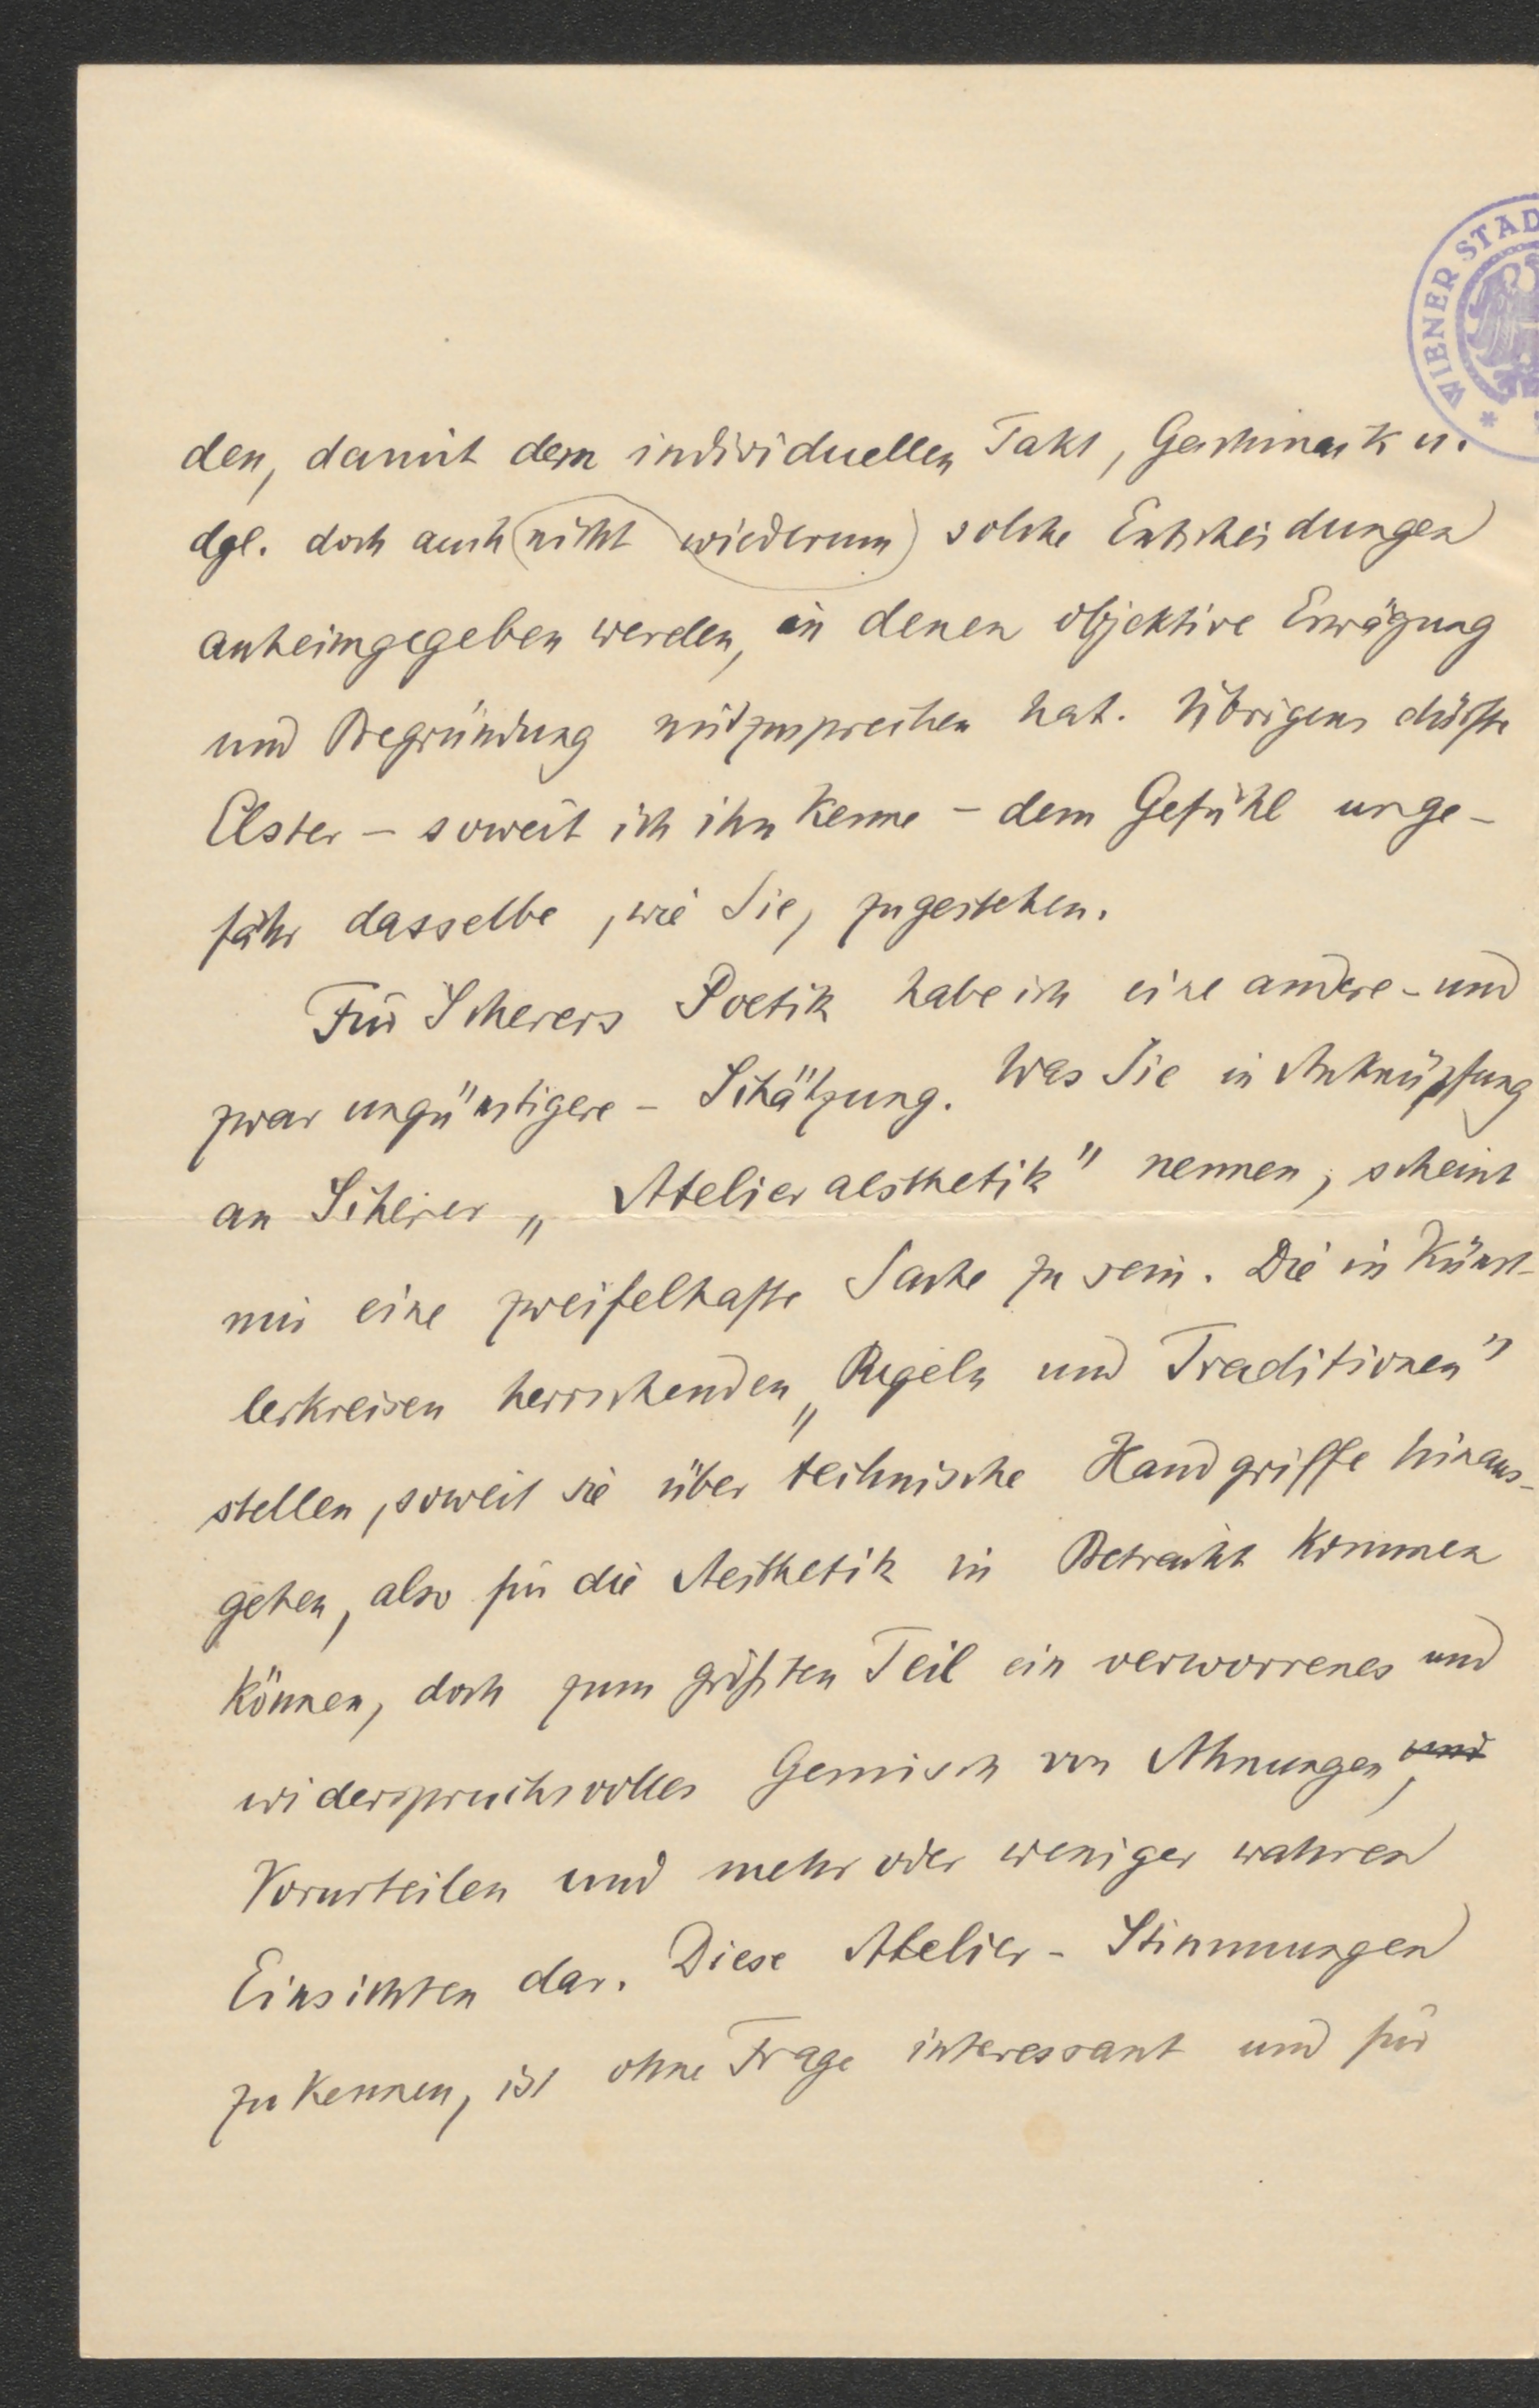 WIENER STAD
den, damit dem individuellen Takt, Geschmack u.
dgl. doch auch nicht wiederum solche Entscheidungen
anheimgegeben werden, in denen objektive Erwägung
und Begründung mitzusprechen hat. Übrigens dürfte
Elster – soweit ich ihn kenne – dem Gefühl unge-
fähr dasselbe, wie Sie, zugestehen.
Für Scherers Poetik habe ich eine andere – und
zwar ungünstigere – Schätzung. Was Sie in Anknüpfung
an Scherer „Atelieraesthetik" nennen, scheint
mir eine zweifelhafte Sache zu sein. Die in Künst-
lerkreisen herrschenden „Regeln und Traditionen"
stellen, soweit sie über technische Handgriffe hinaus-
gehen, also für die Aesthetik in Betracht kommen
können, doch zum größten Teil ein verworrenes und
widerspruchsvolles Gemisch von Ahnungen, und
Vorurteilen und mehr oder weniger wahren
Einsichten dar. Diese Atelier-Stimmungen
zu kennen, ist ohne Frage interessant und für